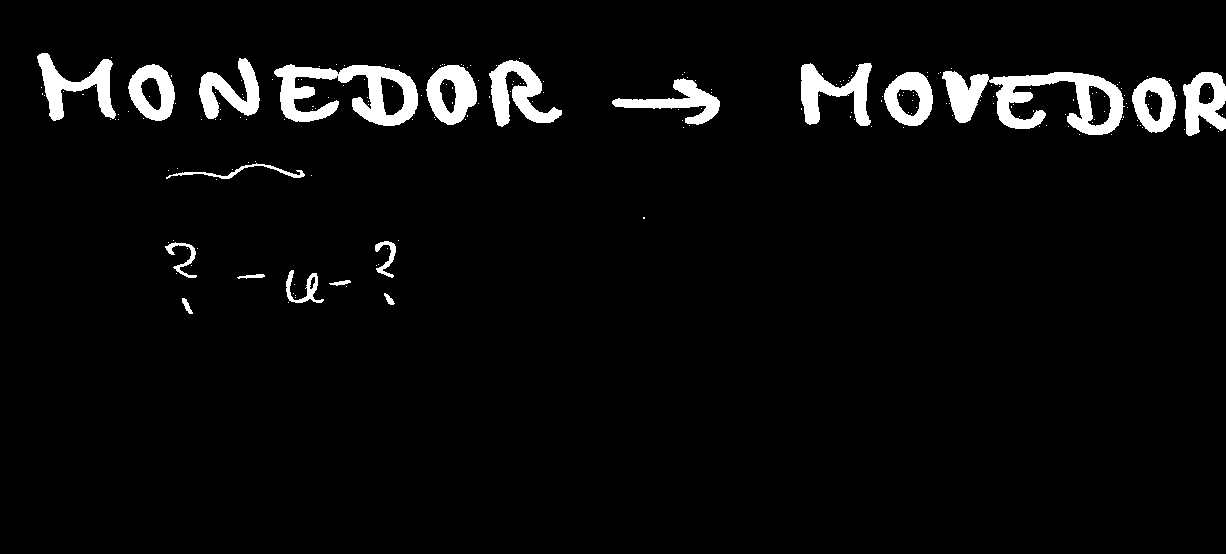 MONEDOR → MOVEDOR
? - u - ?